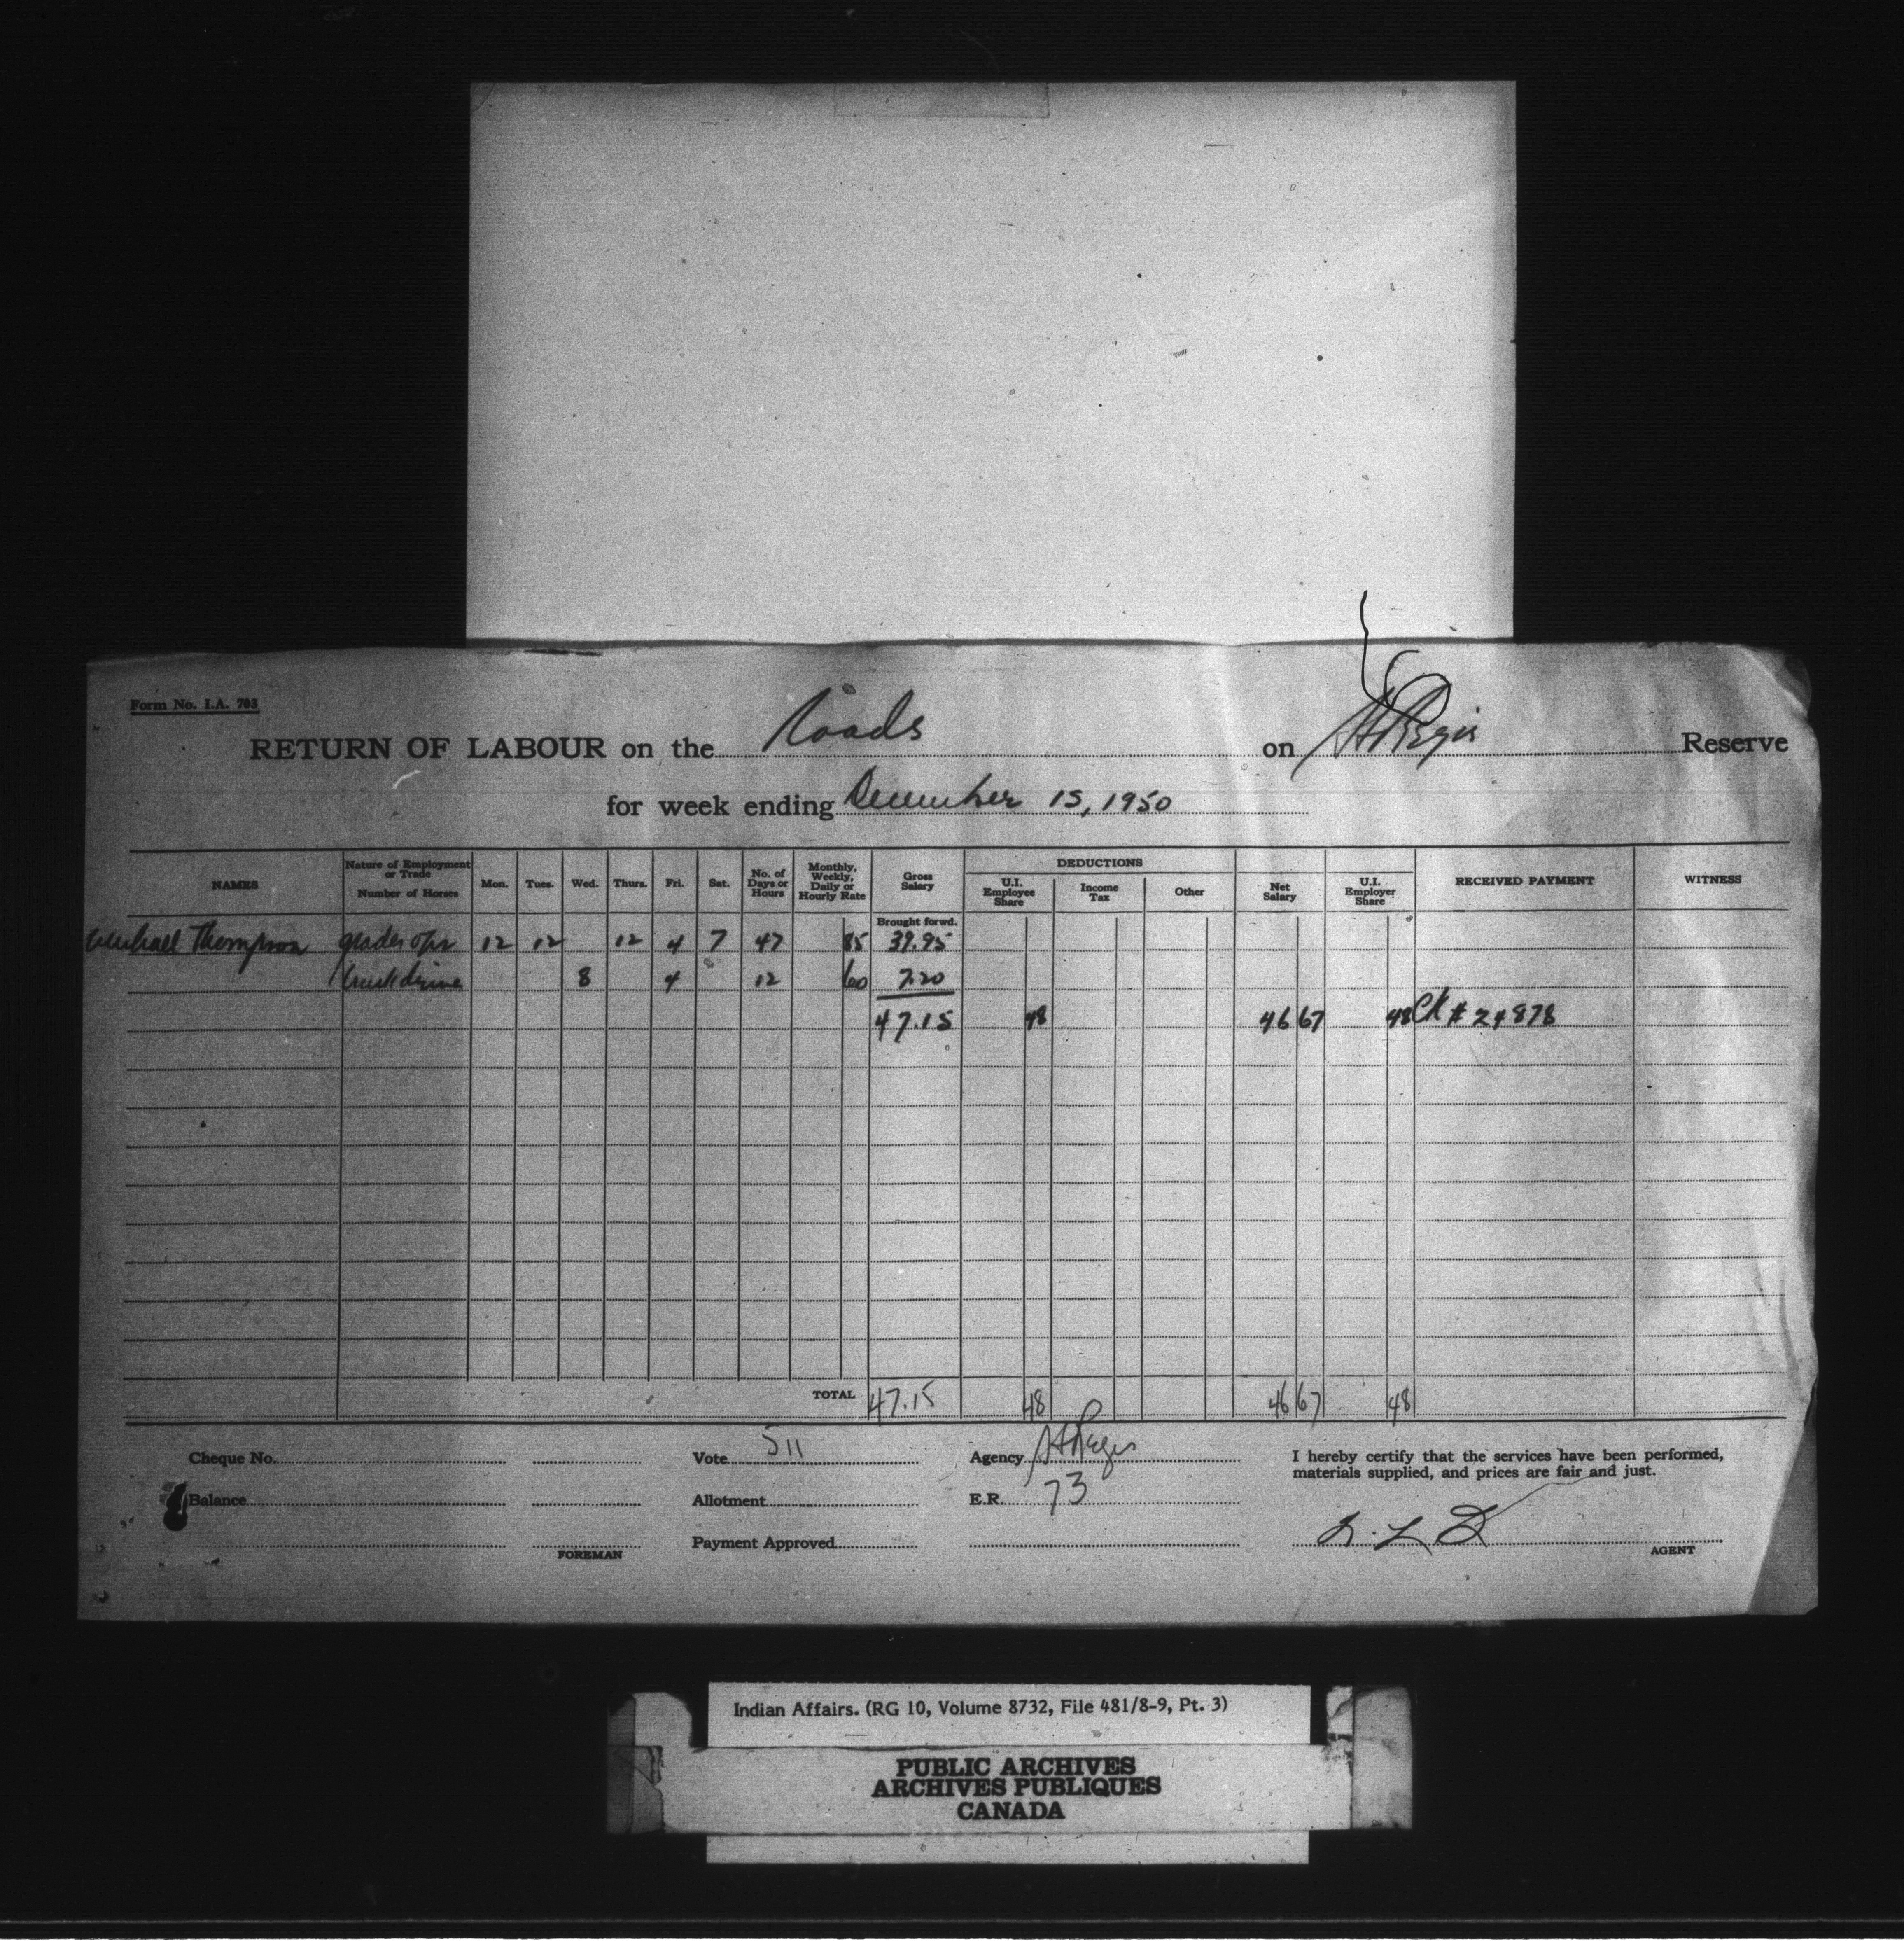 Form No. I.A. 703
RETURN OF LABOUR on the Roads on St Regis Reserve
for week ending December 15, 1950
NAMES Nature of Employment or Trade Number of Horses Mon. Tues. Wed. Thurs. Fri. Sat. No. of Days or Hours Monthly, Weekly, Daily or Hourly Rate Gross Salary DEDUCTIONS U.I. Employee Share Income Tax Other Net Salary U.I. Employer Share RECEIVED PAYMENT WITNESS
Brought forwd.
Thompson grader opr 12 12 12 4 7 47 85 39.95
truck driver 8 4 12 60 7.20
47.15 48 46 67 48 CK # 24878
TOTAL 47.15 48 46 67 48
Cheque No. Vote 511 Agency St Regis I hereby certify that the services have been performed,
materials supplied, and prices are fair and just.
Balance Allotment E.R. 73
Payment Approved
FOREMAN AGENT
Indian Affairs. (RG 10, Volume 8732, File 481/8-9, Pt. 3)
PUBLIC ARCHIVES
ARCHIVES PUBLIQUES
CANADA